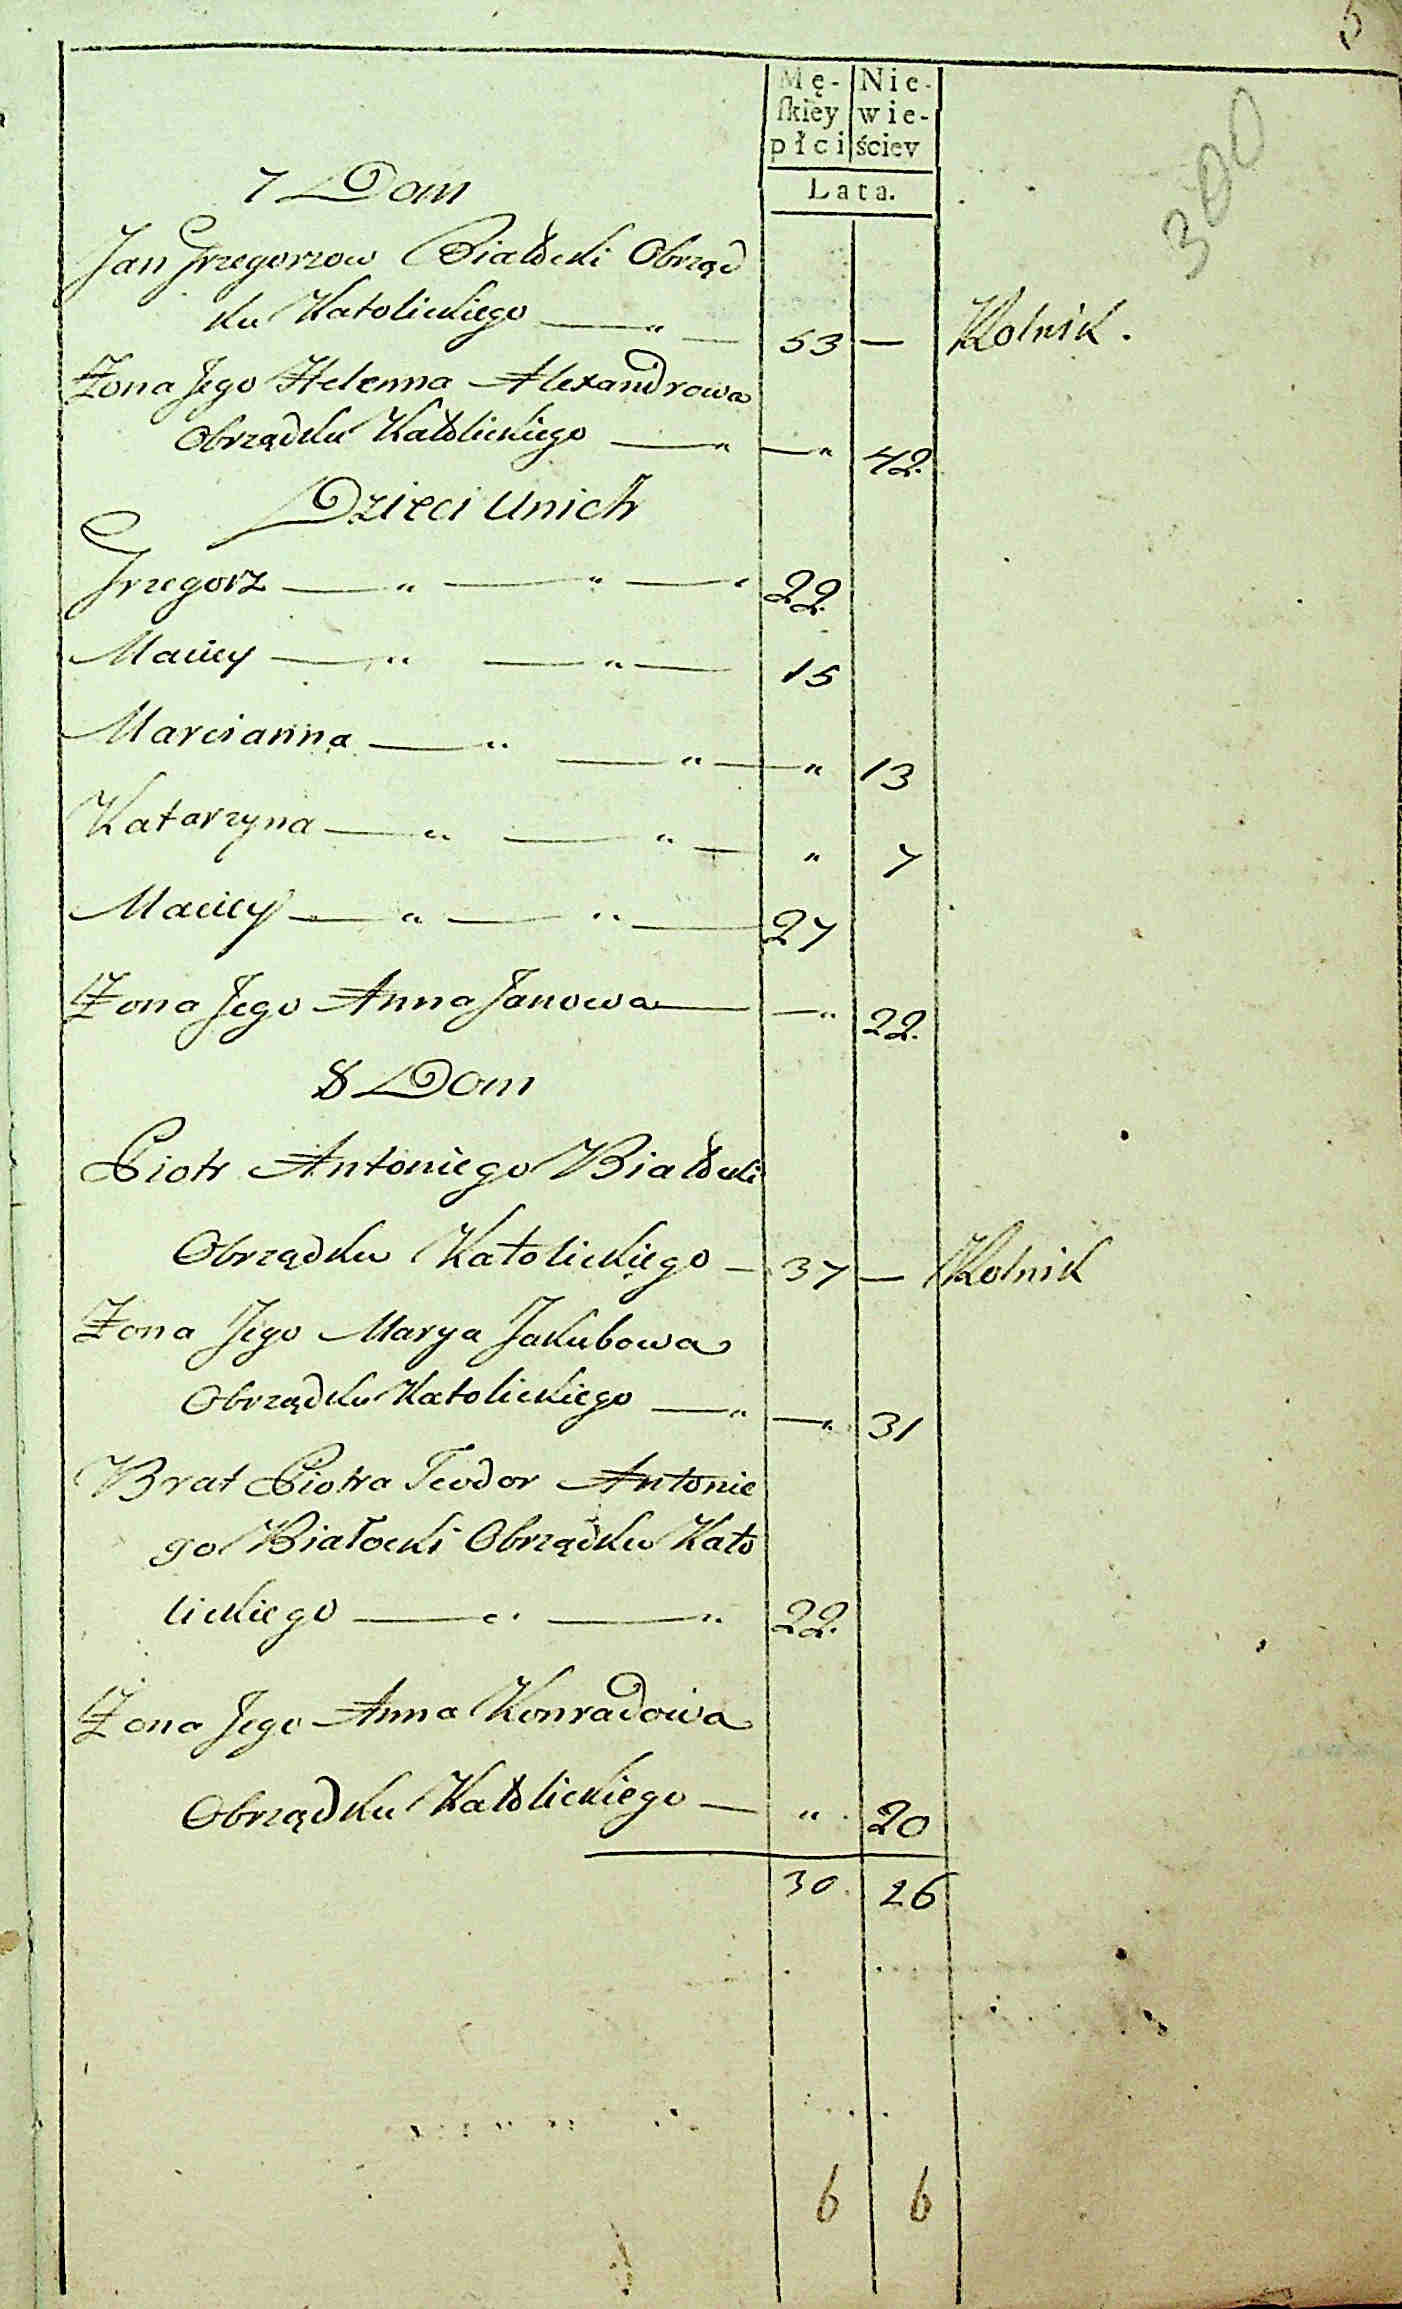 5
Mę- Nie-
ſkiey wie-
płci ściey
Lata.
300
7 Dom
Jan Grzegorzow Białocki Obrząd
ku Katolickiego — " — 53 — Rolnik.
Żona Jego Helenna Alexandrowa
Obrządku Katolickiego — " — " 42.
Dzieci u nich
Grzegorz — " — " — " 22.
Maciey — " — " — 15
Marcianna — " — " — " 13
Katarzyna — " — " — " 7
Maciey — " — " — 27
Żona Jego Anna Janowa — — " 22.
8 Dom
Piotr Antoniego Białocki
Obrządku Katolickiego — 37 — Rolnik
Żona Jego Marya Jakubowa
Obrządku Katolickiego — " — " 31
Brat Piotra Teodor Antonie
go Białocki Obrządku Kato
lickiego — " — " 22.
Żona Jego Anna Konradowa
Obrządku Katolickiego — " 20
30. 26
6 6